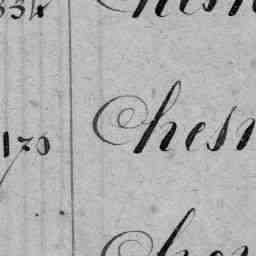 334 Chesn
170 Chesn
Ches